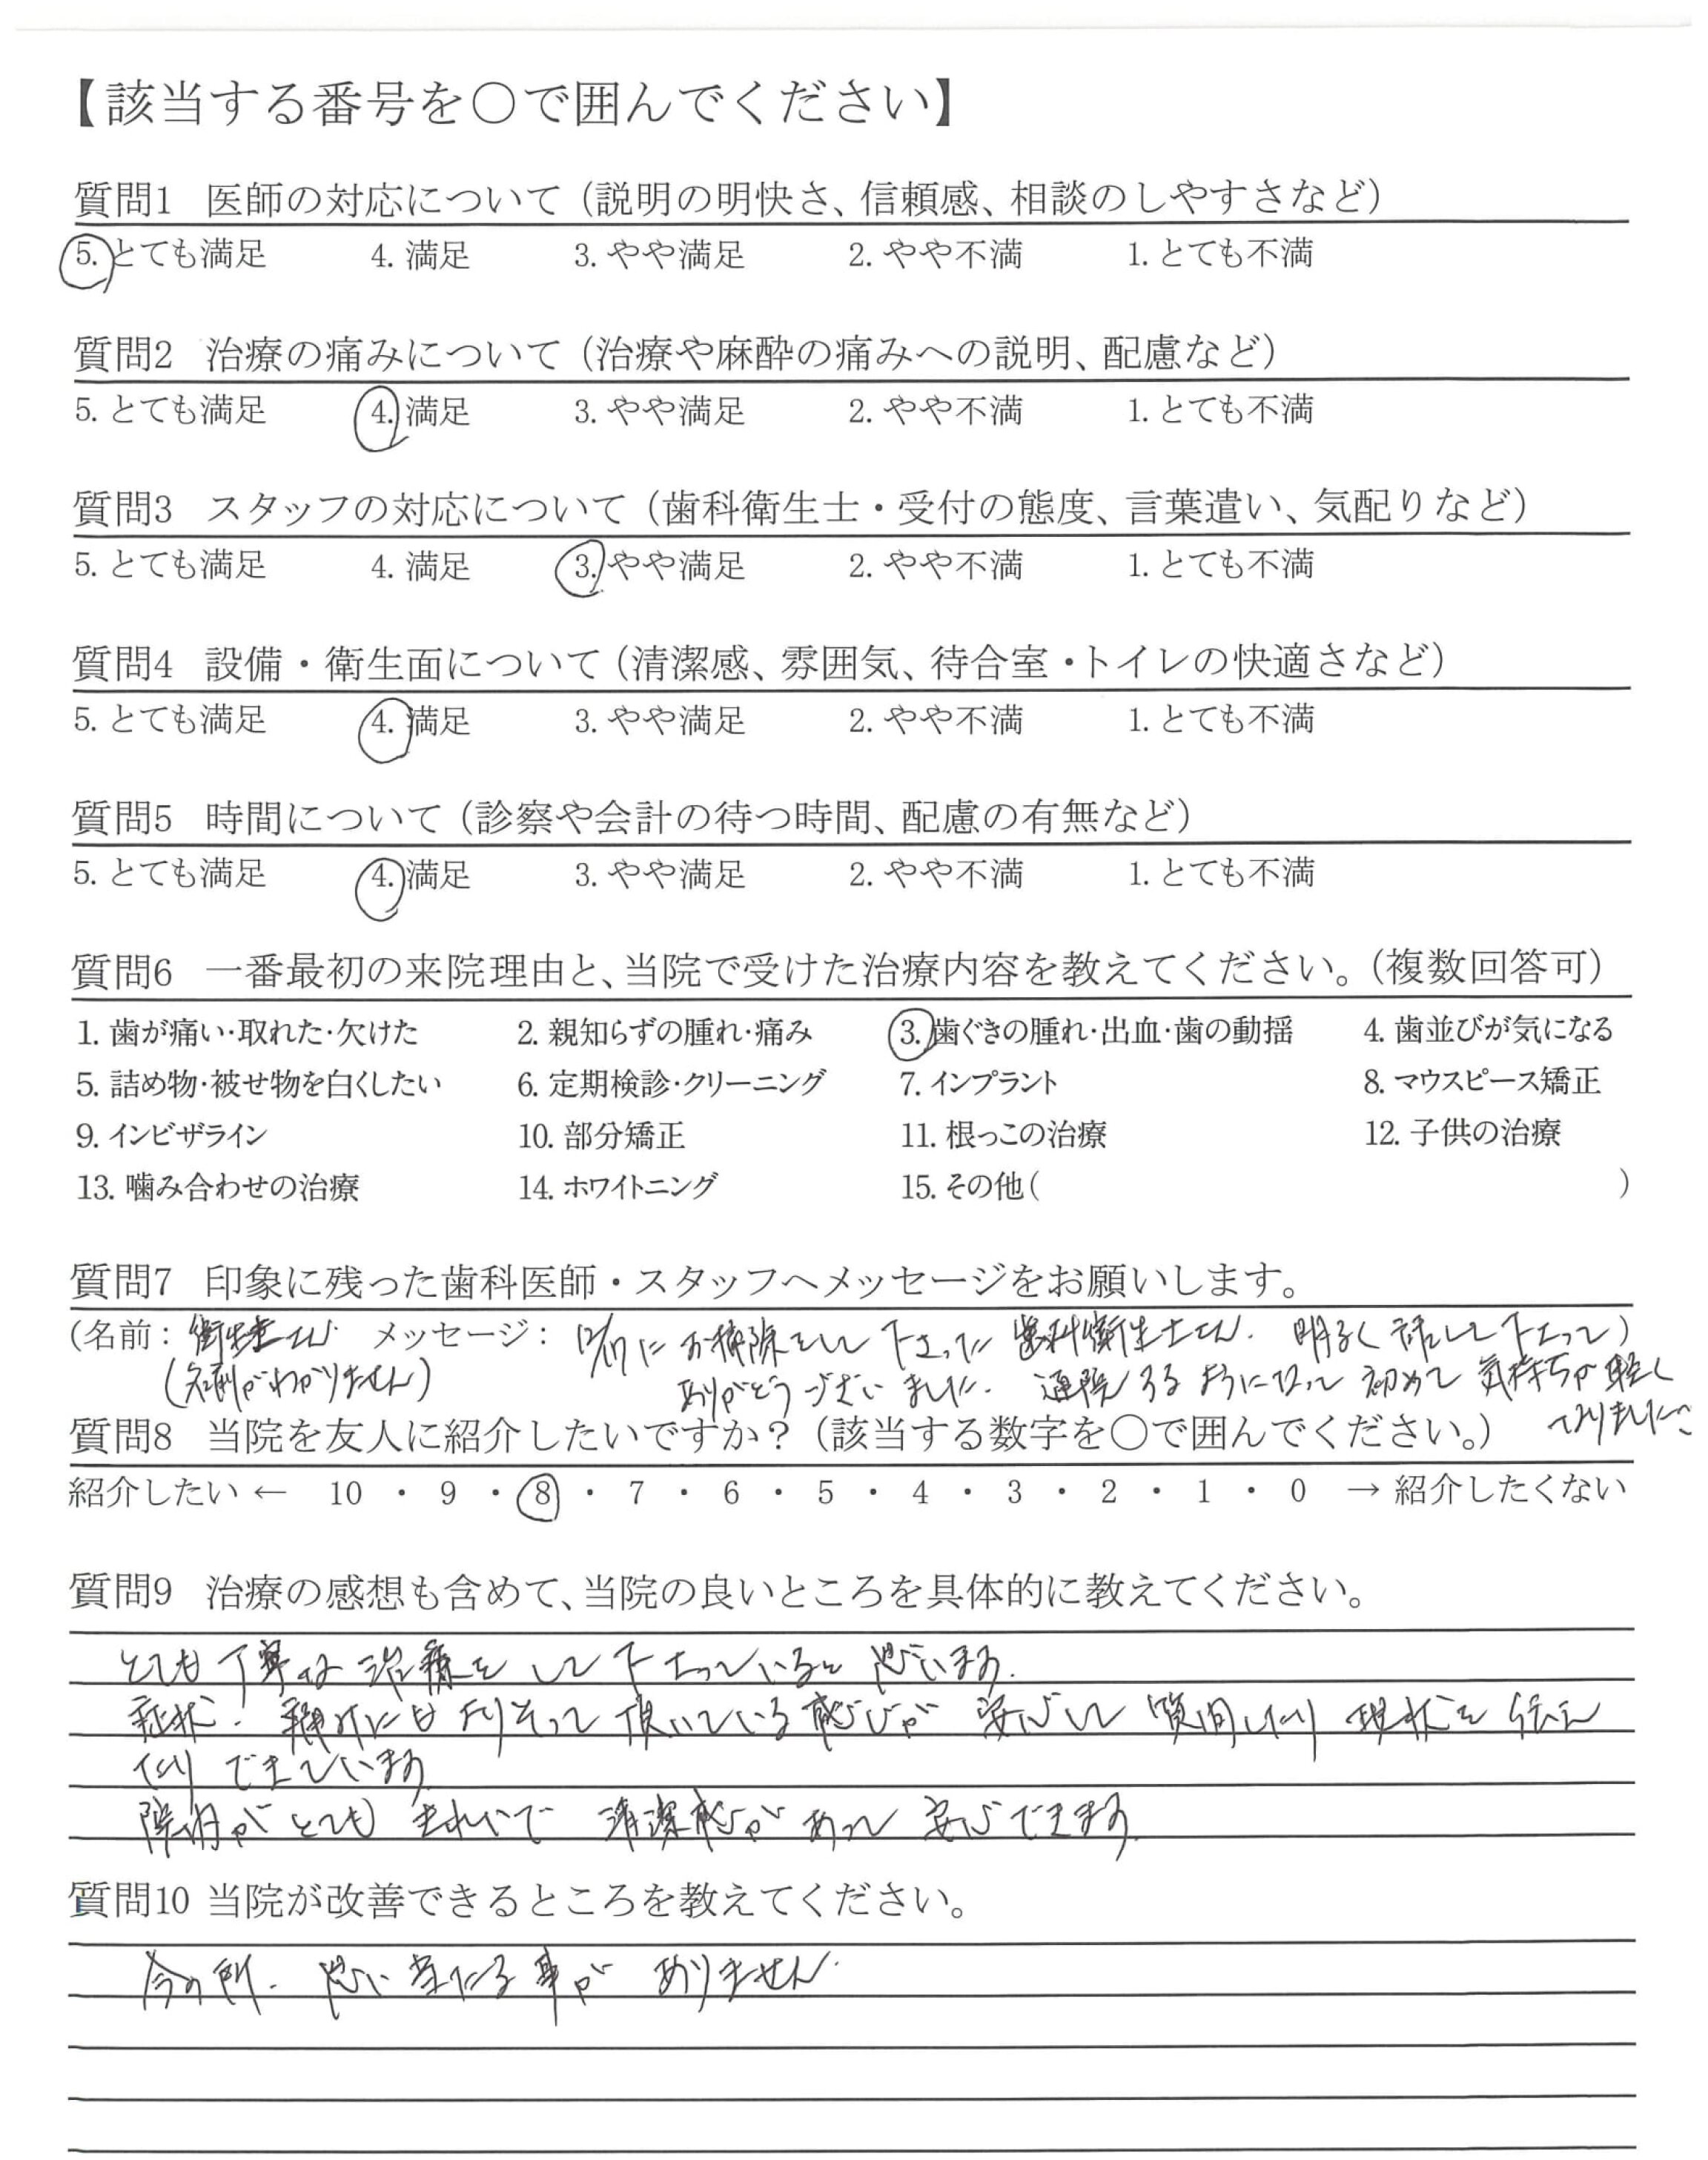 【該当する番号を〇で囲んでください】
質問1 医師の対応について（説明の明快さ、信頼感、相談のしやすさなど）
5. とても満足 4. 満足 3. やや満足 2. やや不満 1. とても不満
質問2 治療の痛みについて（治療や麻酔の痛みへの説明、配慮など）
5. とても満足 4. 満足 3. やや満足 2. やや不満 1. とても不満
質問3 スタッフの対応について（歯科衛生士・受付の態度、言葉遣い、気配りなど）
5. とても満足 4. 満足 3. やや満足 2. やや不満 1. とても不満
質問4 設備・衛生面について（清潔感、雰囲気、待合室・トイレの快適さなど）
5. とても満足 4. 満足 3. やや満足 2. やや不満 1. とても不満
質問5 時間について（診察や会計の待つ時間、配慮の有無など）
5. とても満足 4. 満足 3. やや満足 2. やや不満 1. とても不満
質問6 一番最初の来院理由と、当院で受けた治療内容を教えてください。（複数回答可）
1. 歯が痛い・取れた・欠けた 2. 親知らずの腫れ・痛み 3. 歯ぐきの腫れ・出血・歯の動揺 4. 歯並びが気になる
5. 詰め物・被せ物を白くしたい 6. 定期検診・クリーニング 7. インプラント 8. マウスピース矯正
9. インビザライン 10. 部分矯正 11. 根っこの治療 12. 子供の治療
13. 噛み合わせの治療 14. ホワイトニング 15. その他（ ）
質問7 印象に残った歯科医師・スタッフへメッセージをお願いします。
（名前：衛生士さん メッセージ：12/17にお掃除をして下さった歯科衛生士さん。明るく話して下さって）
（名前がわかりません） ありがとうございました。通院するようになって初めて気持ちが軽く
なりました。
質問8 当院を友人に紹介したいですか？（該当する数字を〇で囲んでください。）
紹介したい ← 10 ・ 9 ・ 8 ・ 7 ・ 6 ・ 5 ・ 4 ・ 3 ・ 2 ・ 1 ・ 0 → 紹介したくない
質問9 治療の感想も含めて、当院の良いところを具体的に教えてください。
とても丁寧な治療をして下さっていると思います。
症状、よりそって頂いている感じが安心して質問したり現状を伝え
たりできています。
院内がとてもきれいで清潔感があって安心できます。
質問10 当院が改善できるところを教えてください。
今の所、思い当たる事がありません。